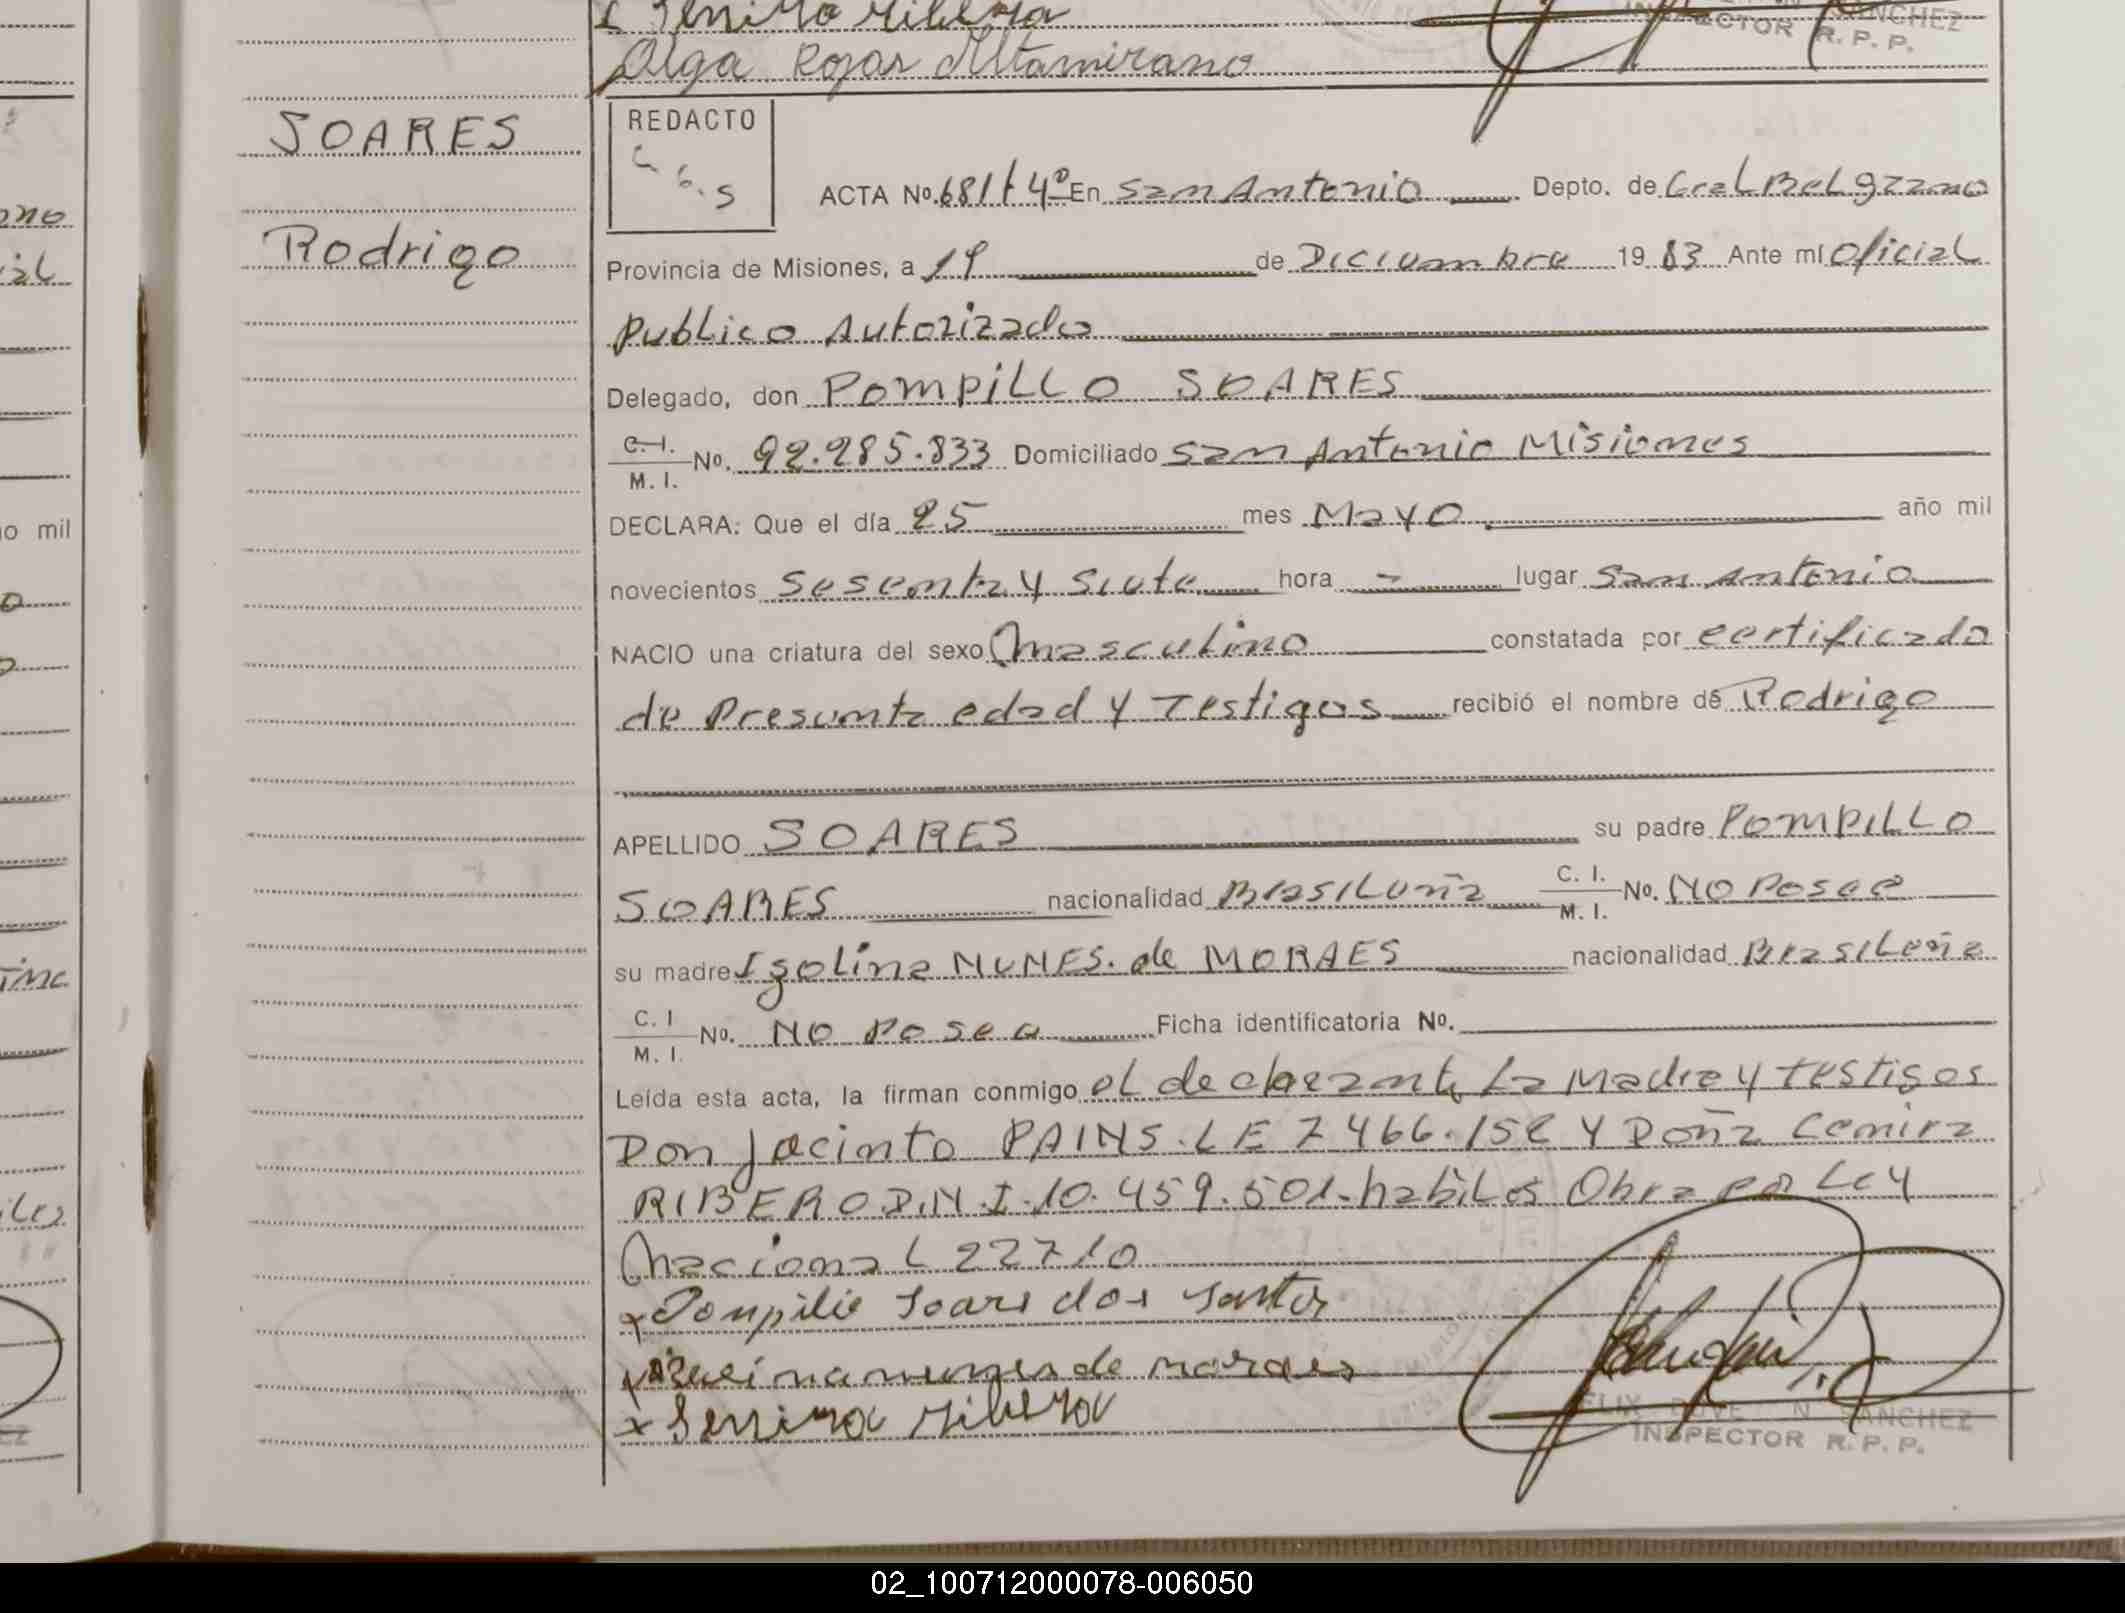 Olga Rojas Altamirano
INSPECTOR R. P. P.
SOARES
Rodrigo
REDACTO
ACTA No. 681 t 4º En San Antonio Depto. de Gral Belgrano
Provincia de Misiones, a 19 de Diciembre 1983 Ante mí Oficial
Publico Autorizado
Delegado, don POMPILLO SOARES
C. I. M. I. No. 92.285.833 Domiciliado San Antonio Misiones
DECLARA: Que el día 25 mes Mayo año mil
novecientos Sesenta y Siete hora - lugar San Antonio
NACIO una criatura del sexo Masculino constatada por certificado
de Presunta edad y Testigos recibió el nombre de Rodrigo
APELLIDO SOARES su padre POMPILLO
SOARES nacionalidad Brasileña C. I. M. I. No. No Posee
su madre Izolina NUNES de MORAES nacionalidad Brasileña
C. I M. I. No. No Posee Ficha identificatoria No.
Leída esta acta, la firman conmigo el declarante, La Madre y testigos
Don Jacinto PAINS. LE 7466.152 Y Doña Cemira
RIBERO D.N.I. 10.459.501. habiles Obra por Ley
Nacional 22710
x Pompilio Soares dos Santos
nunes de moraes
x ribera
SANCHEZ
INSPECTOR R. P. P.
ano
ial
o mil
02_100712000078-006050